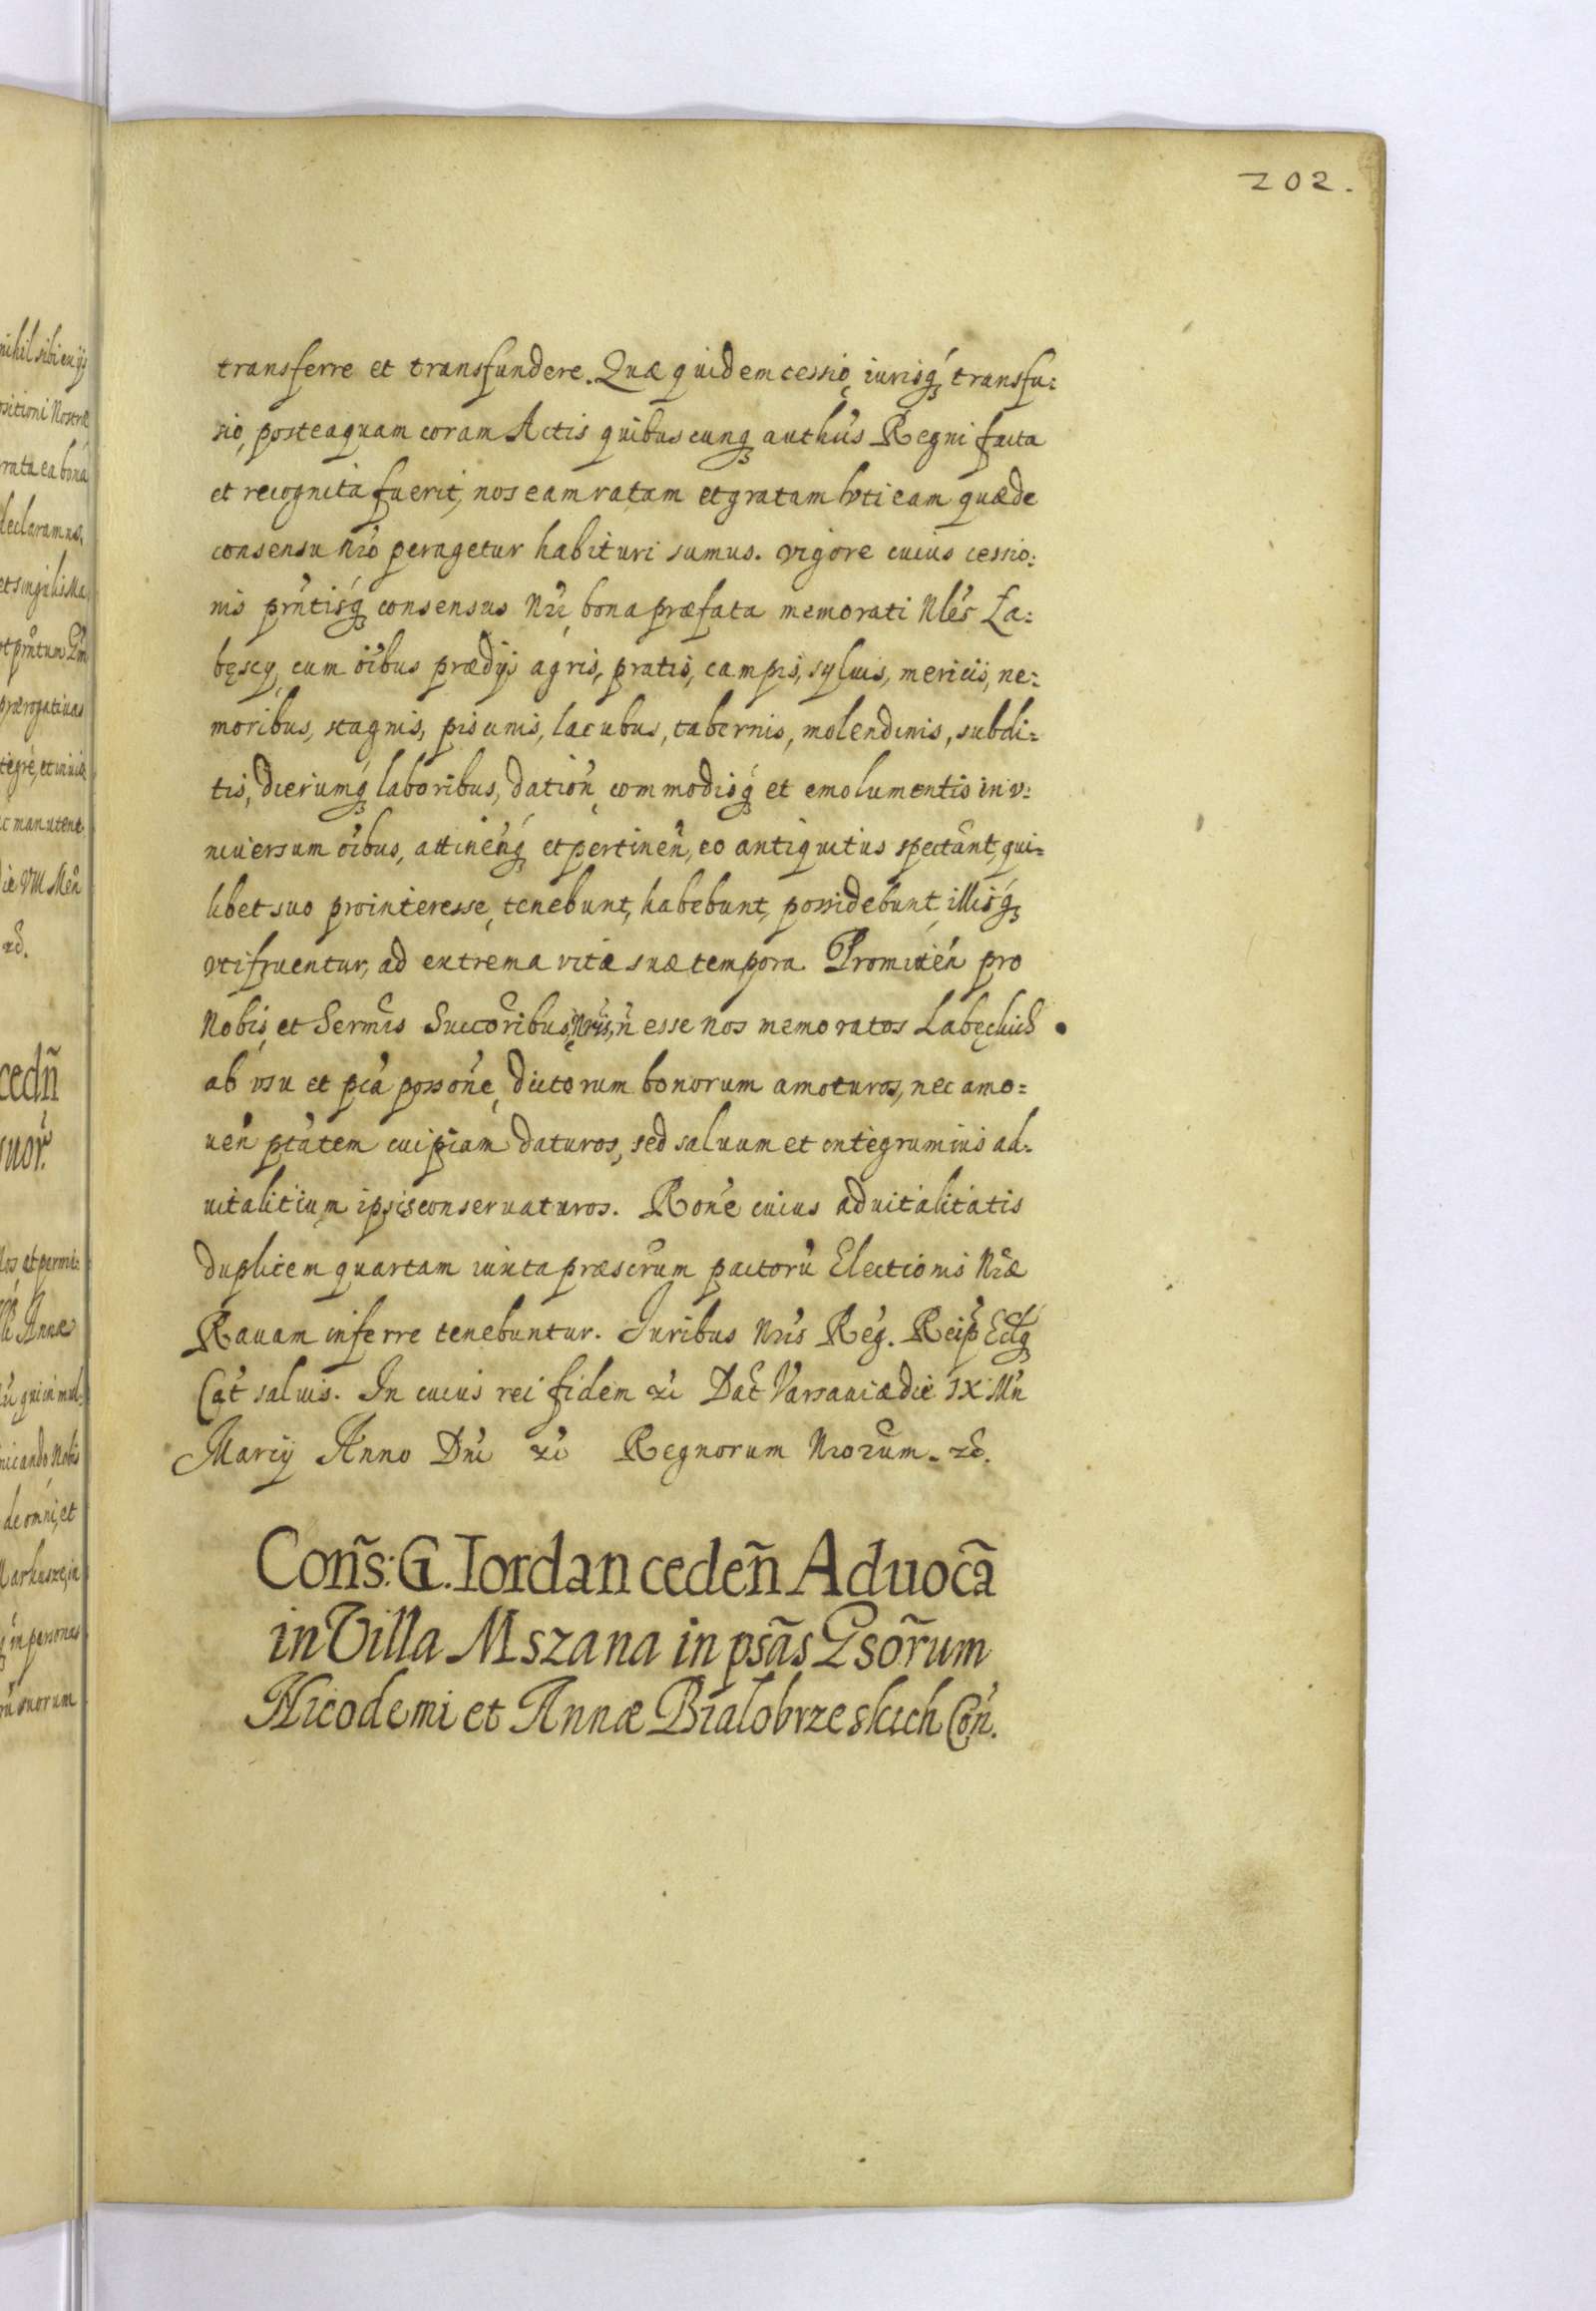 202.
transferre et transfundere. Quæ quidem cessio, iurisq́ꝫ transfu:
sio, posteaquam coram Actis quibuscunqꝫ authu᷑s Regni facta
et recognita fuerit, nos eam ratam et gratam vti eam quæ de
consensu nr̃o peragetur habituri sumus. vigore cuius cessio:
nis pñtisq́ꝫ consensus Nr̃i, bona præfata memorati Nle᷑s La:
bęscy, cum o᷑ibus prædijs agris, pratis, campis, syluis, mericis, ne:
moribus, stagnis, piscinis, lacubus, tabernis, molendinis, subdi:
tis, dierumq́ꝫ laboribus, dation᷑, commodisq́ꝫ et emolumentis in v:
niuersum o᷑ibus, attine᷑ńqꝫ et pertinen᷑, eo antiquitus spectant, qui:
libet suo pro interesse, tenebunt, habebunt, possidebunt, illisq́ꝫ
vtifruentur, ad extrema vitæ suæ tempora. Promitte᷑n pro
Nobis, et Serm̃is Succõribus, Nr̃is, ñ esse nos memoratos Labęckich
ab vsu et pca᷑ posson᷑e, dictorum bonorum amoturos, nec amo:
uen᷑ pta᷑tem cuipiam daturos, sed saluum et integrum ius ad:
uitalitium ipsis conseruaturos. Ron᷑e cuius aduitalitatis
duplicem quartam iuxta præscr̃um pactorũ Electionis Nr̃æ
Rauam inferre tenebuntur. Juribus Nr̃is Reg᷑. Reip᷑ Ecclꝫ
Cat᷑ saluis. In cuius rei fidem ꝛc̃ Dat᷑ Varsauiæ die IX Mn᷑
Marcij Anno Dn̄i ꝛc̃ Regnorum Nr̃orum. ꝛc̃.
Coñs: G. Iordan cedeñ Aduocã
in Villa Mszana in psãs Gsõrum
Nicodemi et Annæ Bialobrzeskich Cõn.